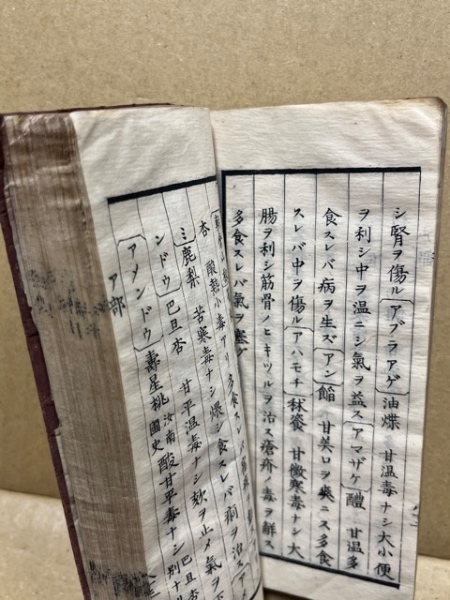 シ腎ヲ傷ル〔アブラアゲ〕油煠 甘温毒ナシ大小便
ヲ利シ中ヲ温ニシ氣ヲ益ス〔アマザケ〕醴 甘温多
食スレバ病ヲ生ズ〔アン〕餡 甘美口ヲ爽ニス多食
スレバ中ヲ傷ル〔アハモチ〕秫餈 甘微寒毒ナシ大
腸ヲ利シ筋骨ノヒキツルヲ治ス瘡疥ノ毒ヲ解ス
多食スレバ氣ヲ塞グ
ア部
〔アメンドウ〕壽星桃 汝南圃史 酸甘平毒ナシ
ンドウ〕巴旦杏 甘平温毒ナシ欬ヲ止メ氣ヲ
ミ〕鹿梨 苦寒毒ナシ煨シ食スレバ痢ヲ治ス
杏 酸熱小毒アリ 多食スレバ